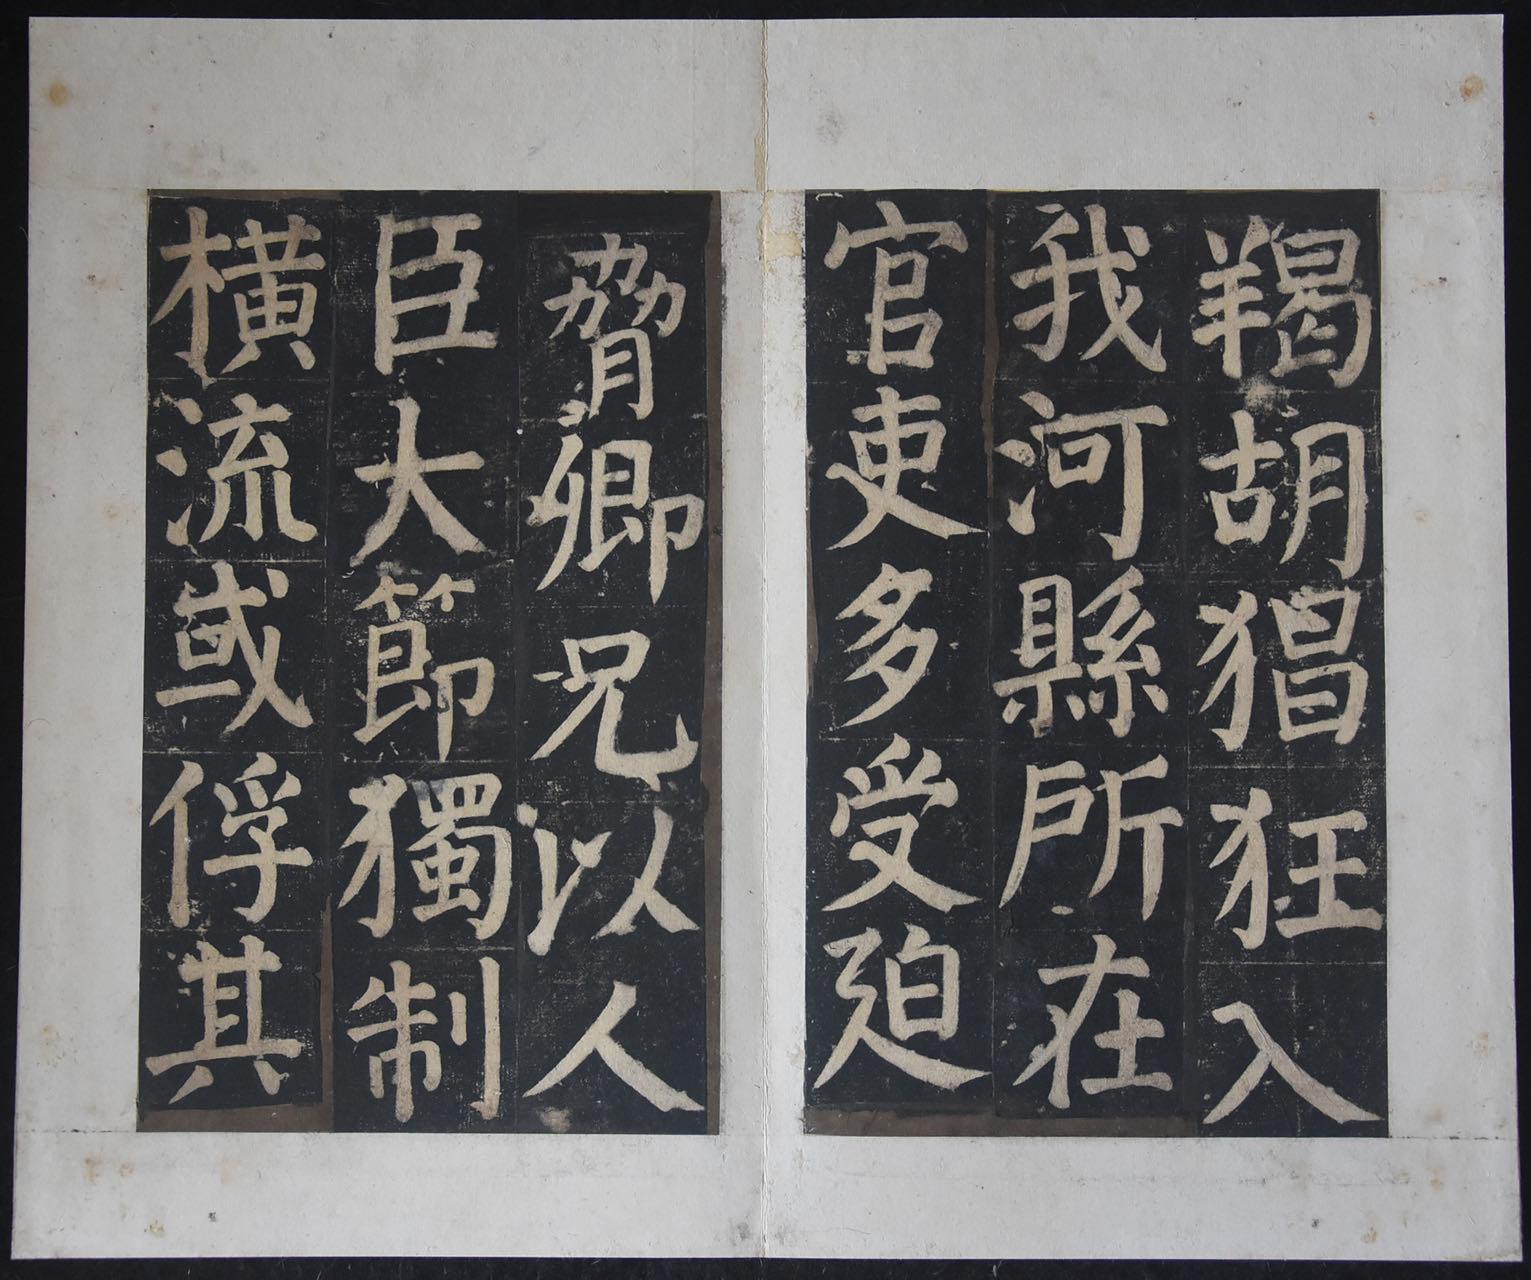 羯胡猖狂入
我河縣所在
官吏多受廹
脅卿兄以人
臣大節獨制
橫流或俘其